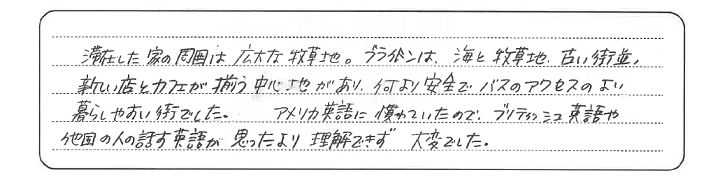 滞在した家の周囲は広大な牧草地。ブライトンは、海と牧草地、古い街並、
新しい店とカフェが揃う中心地があり、何より安全でバスのアクセスのよい
暮らしやすい街でした。 アメリカ英語に慣れていたので、ブリティッシュ英語や
他国の人の話す英語が思ったより理解できず大変でした。